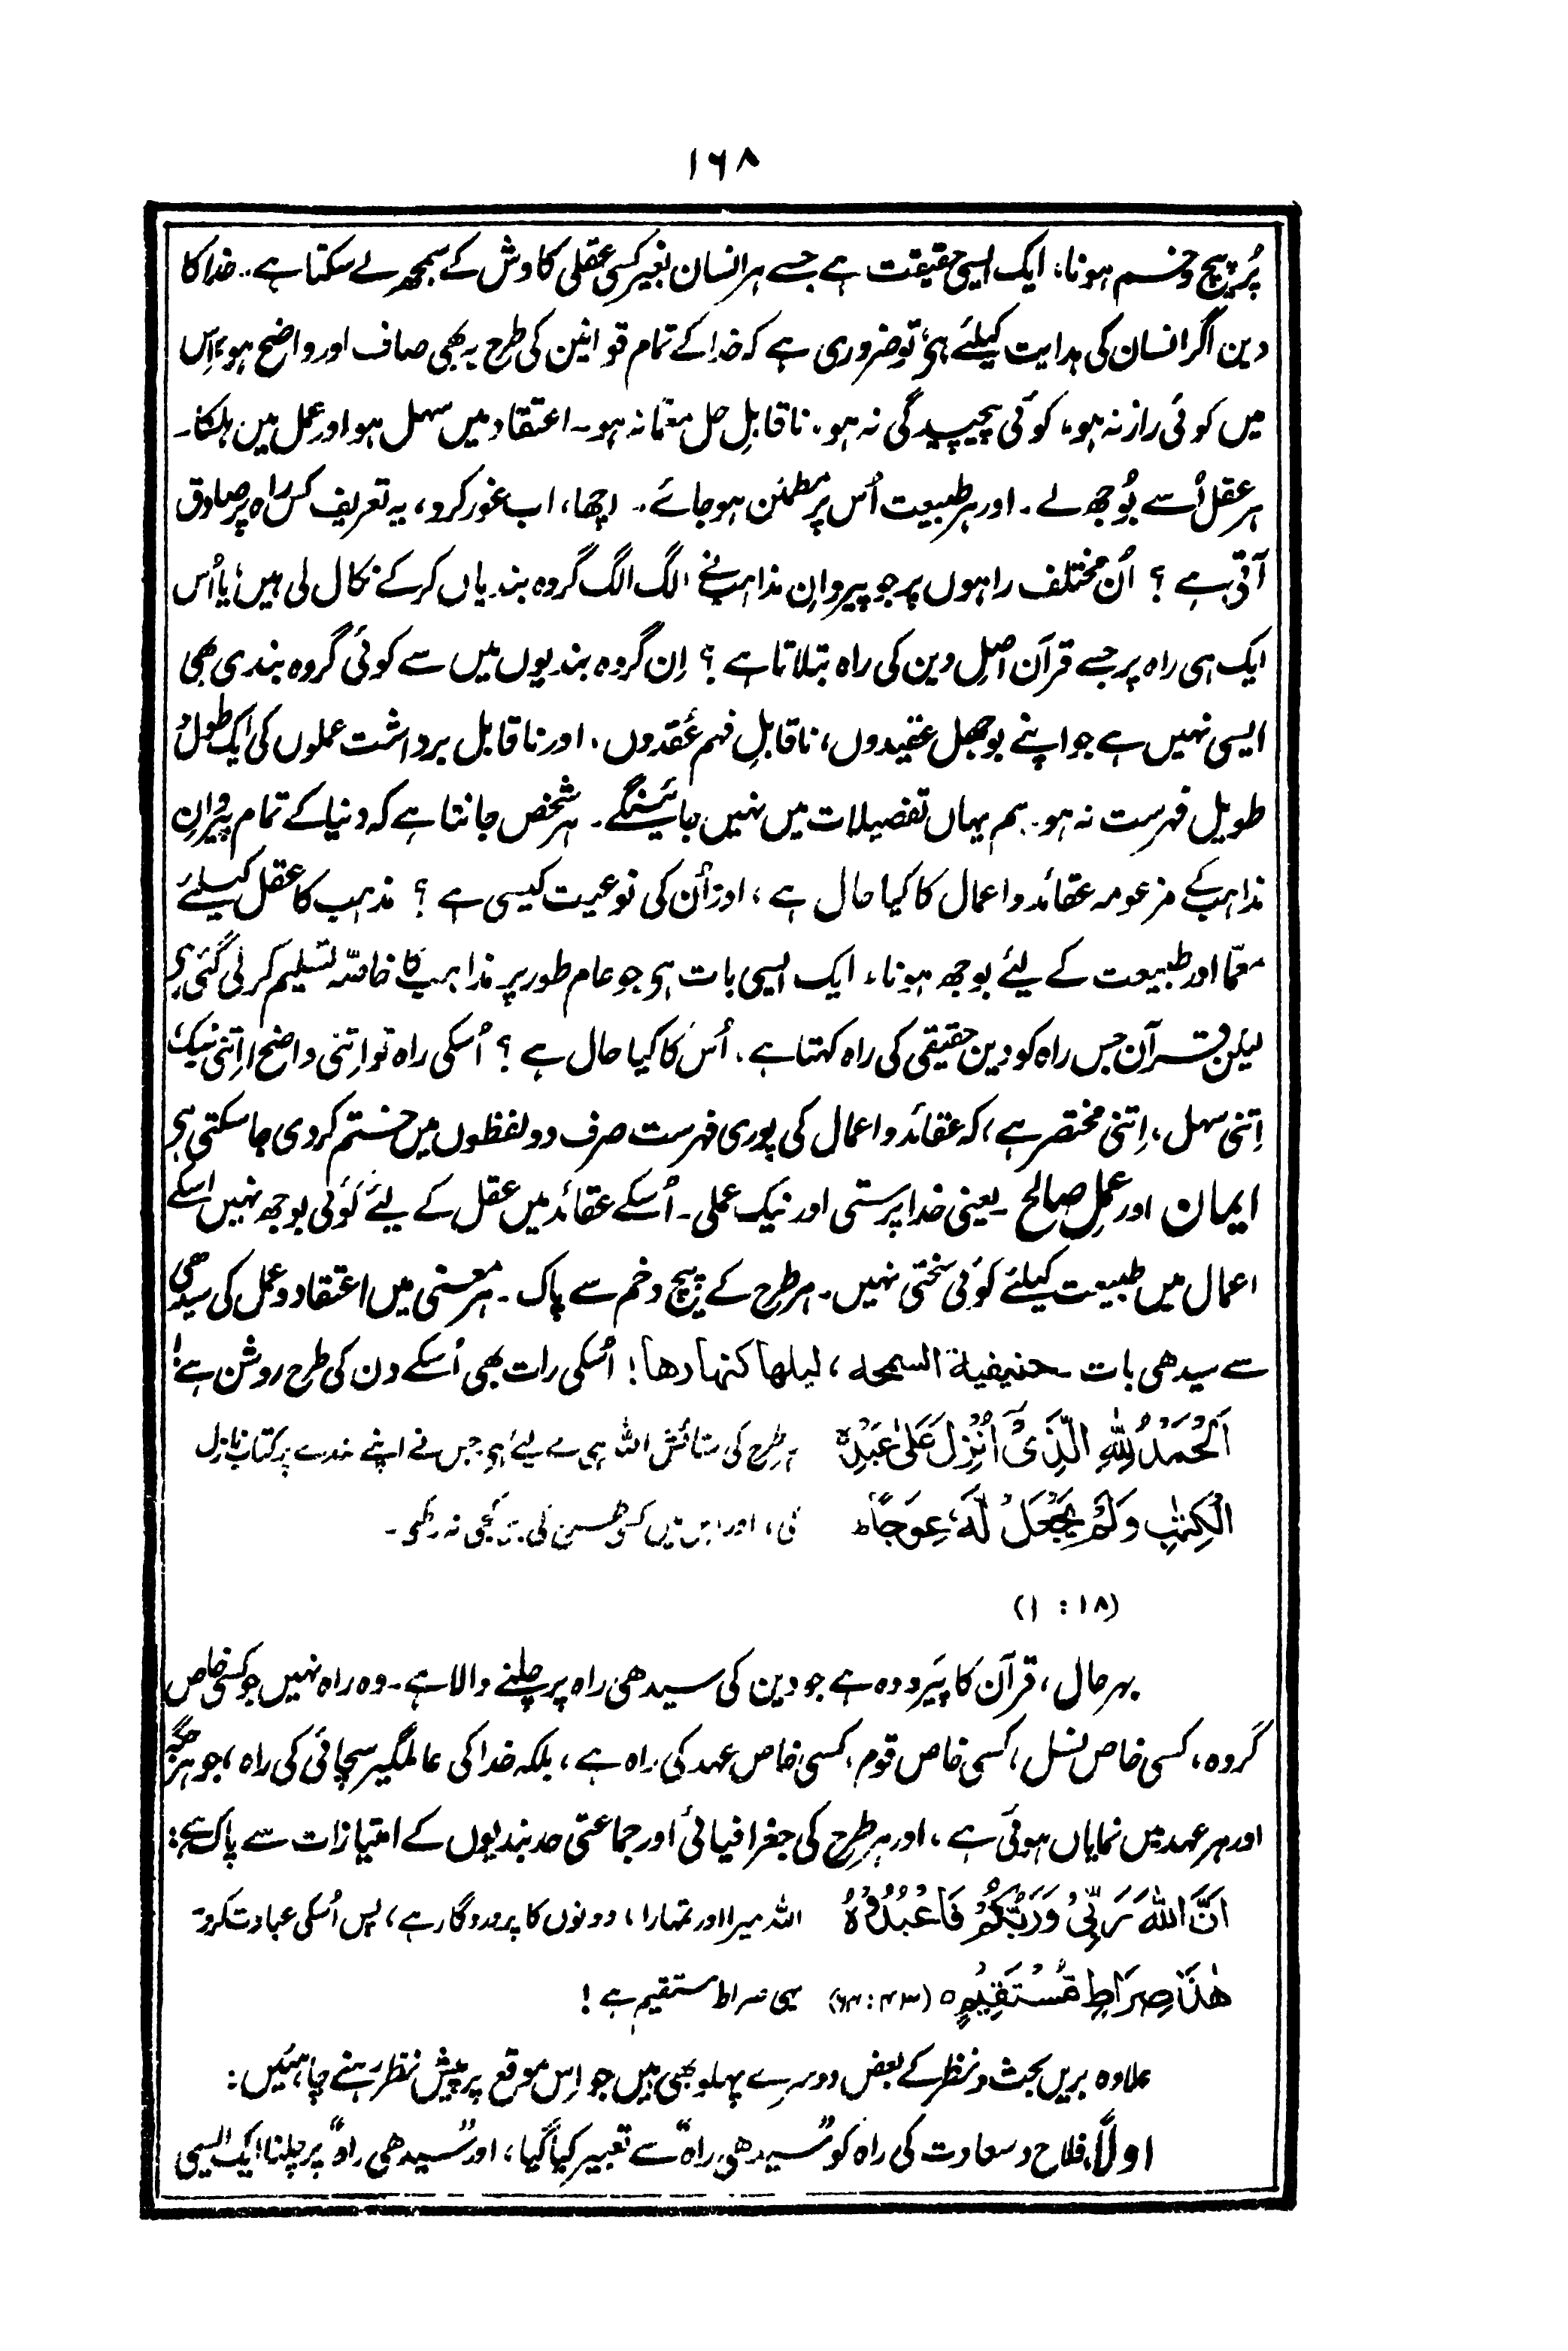 ۱۶۸
پُر پیچ و خم ہونا، ایک ایسی حقیقت ہے جسے ہر انسان بغیر کسی عقلی کاوش کے سمجھ لے سکتا ہے۔ خدا کا
دین اگر انسان کی ہدایت کیلئے ہی تو ضروری ہے کہ خدا کے تمام قوانین کی طرح یہ بھی صاف اور واضح ہو، اِس
میں کوئی راز نہ ہو، کوئی پیچیدگی نہ ہو، ناقابلِ حل معمّا نہ ہو۔ اعتقاد میں سہل ہو اور عمل میں ہلکا۔
ہر عقل اُسے بُوجھ لے۔ اور ہر طبیعت اُس پر مطمئن ہو جائے۔ اچھا، اب غور کرو، یہ تعریف کس راہ پر صادق
آتی ہے؟ اُن مختلف راہوں پر جو پیروانِ مذاہب نے الگ الگ گروہ بندیاں کر کے نکال لی ہیں؛ یا اُس
ایک ہی راہ پر جسے قرآن اصلِ دین کی راہ بتلاتا ہے؟ اِن گروہ بندیوں میں سے کوئی گروہ بندی بھی
ایسی نہیں ہے جو اپنے بوجھل عقیدوں، ناقابلِ فہم عُقدوں، اور ناقابل برداشت عملوں کی ایک طول و
طویل فہرست نہ ہو۔ ہم یہاں تفصیلات میں نہیں جائینگے۔ ہر شخص جانتا ہے کہ دنیا کے تمام پیروانِ
مذاہب کے مزعومہ عقائد و اعمال کا کیا حال ہے، اور اُن کی نوعیت کیسی ہے؟ مذہب کا عقل کیلئے
معمّا اور طبیعت کے لیئے بوجھ ہونا، ایک ایسی بات ہی جو عام طور پر مذاہب کا خاصّہ تسلیم کر لی گئی ہی
لیکن قرآن جس راہ کو دین حقیقی کی راہ کہتا ہے، اُس کا کیا حال ہے؟ اُسکی راہ تو اتنی واضح اتنی نیک،
اِتنی سہل، اِتنی مختصر ہے، کہ عقائد و اعمال کی پوری فہرست صرف دو لفظوں میں ختم کر دی جا سکتی ہی
ایمان اور عملِ صالح۔ یعنی خدا پرستی اور نیک عملی۔ اُسکے عقائد میں عقل کے لیئے کوئی بوجھ نہیں اسکے
اعمال میں طبیعت کیلئے کوئی سختی نہیں۔ ہر طرح کے پیچ و خم سے پاک۔ ہر معنی میں اعتقاد و عمل کی سیدھی
سے سیدھی بات۔ حنیفیة السمحه، لیلها کنهارها! اُسکی رات بھی اُسکے دن کی طرح روشن ہے!
اَلْحَمْدُ لِلّٰهِ الَّذِیْۤ اَنْزَلَ عَلٰی عَبْدِهِ ہر طرح کی ستائش اللہ ہی کے لیئے ہی جس نے اپنے بندے پر کتاب نازل
الْكِتٰبَ وَلَمْ یَجْعَلْ لَّهٗ عِوَجًا کی، اور اس میں کسی طرح کی بھی کجی نہ رکھی۔
(۱۸ : ۱)
بہر حال، قرآن کا پَیرو وہ ہے جو دین کی سیدھی راہ پر چلنے والا ہے۔ وہ راہ نہیں جو کسی خاص
گروہ، کسی خاص نسل، کسی خاص قوم، کسی خاص عہد کی راہ ہے، بلکہ خدا کی عالمگیر سچائی کی راہ، جو ہر جگہ
اور ہر عہد میں نمایاں ہوئی ہے، اور ہر طرح کی جغرافیائی اور جماعتی حد بندیوں کے امتیازات سے پاک ہے:
اِنَّ اللّٰهَ رَبِّیْ وَرَبُّكُمْ فَاعْبُدُوْهُ اللہ میرا اور تمہارا، دونوں کا پروردگار ہے، پس اُسکی عبادت کرو۔
هٰذَا صِرَاطٌ مُّسْتَقِیْمٌ (۴۳: ۶۴) یہی صراط مستقیم ہے!
علاوہ بریں بحث و نظر کے بعض دوسرے پہلو بھی ہیں جو اِس موقع پر پیش نظر رہنے چاہئیں:
اولاً، فلاح و سعادت کی راہ کو "سیدھی راہ" سے تعبیر کیا گیا، اور "سیدھی راہ" پر چلنا ایک ایسی